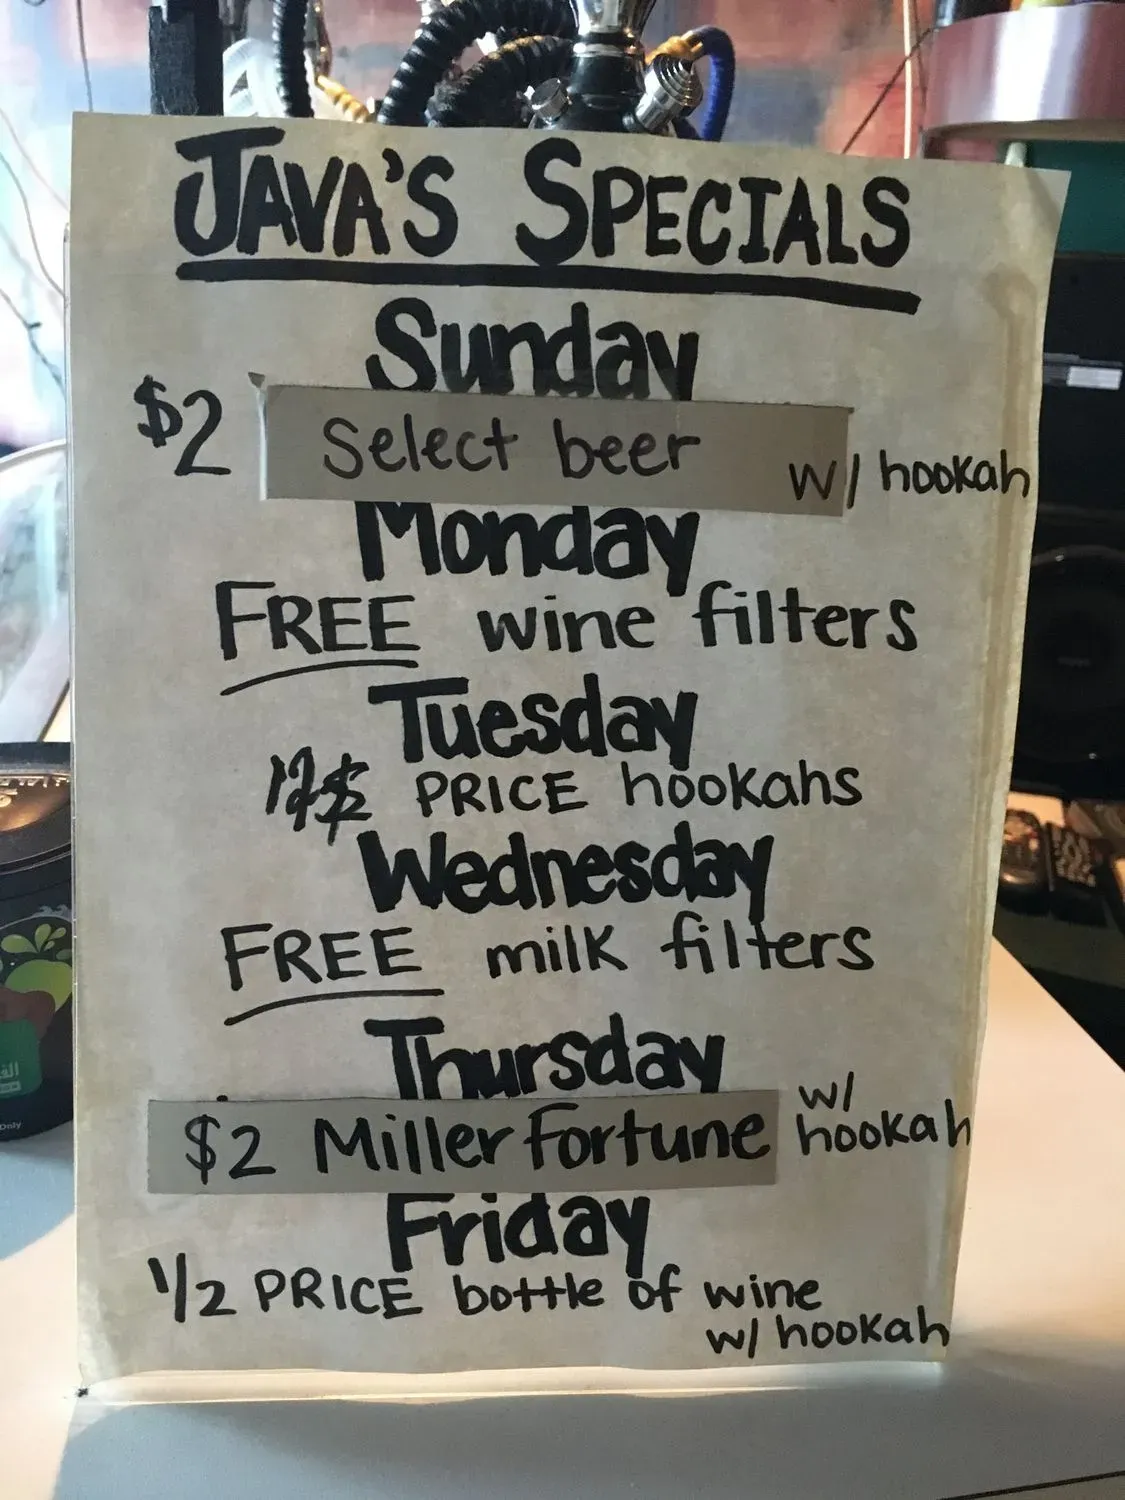 JAVA'S SPECIALS
Sunday
$2 Select beer w/ hookah
Monday
FREE wine filters
Tuesday
PRICE hookahs
Wednesday
FREE milk filters
Thursday
$2 Miller Fortune w/ hookah
Friday
1/2 PRICE bottle of wine
w/ hookah
Only